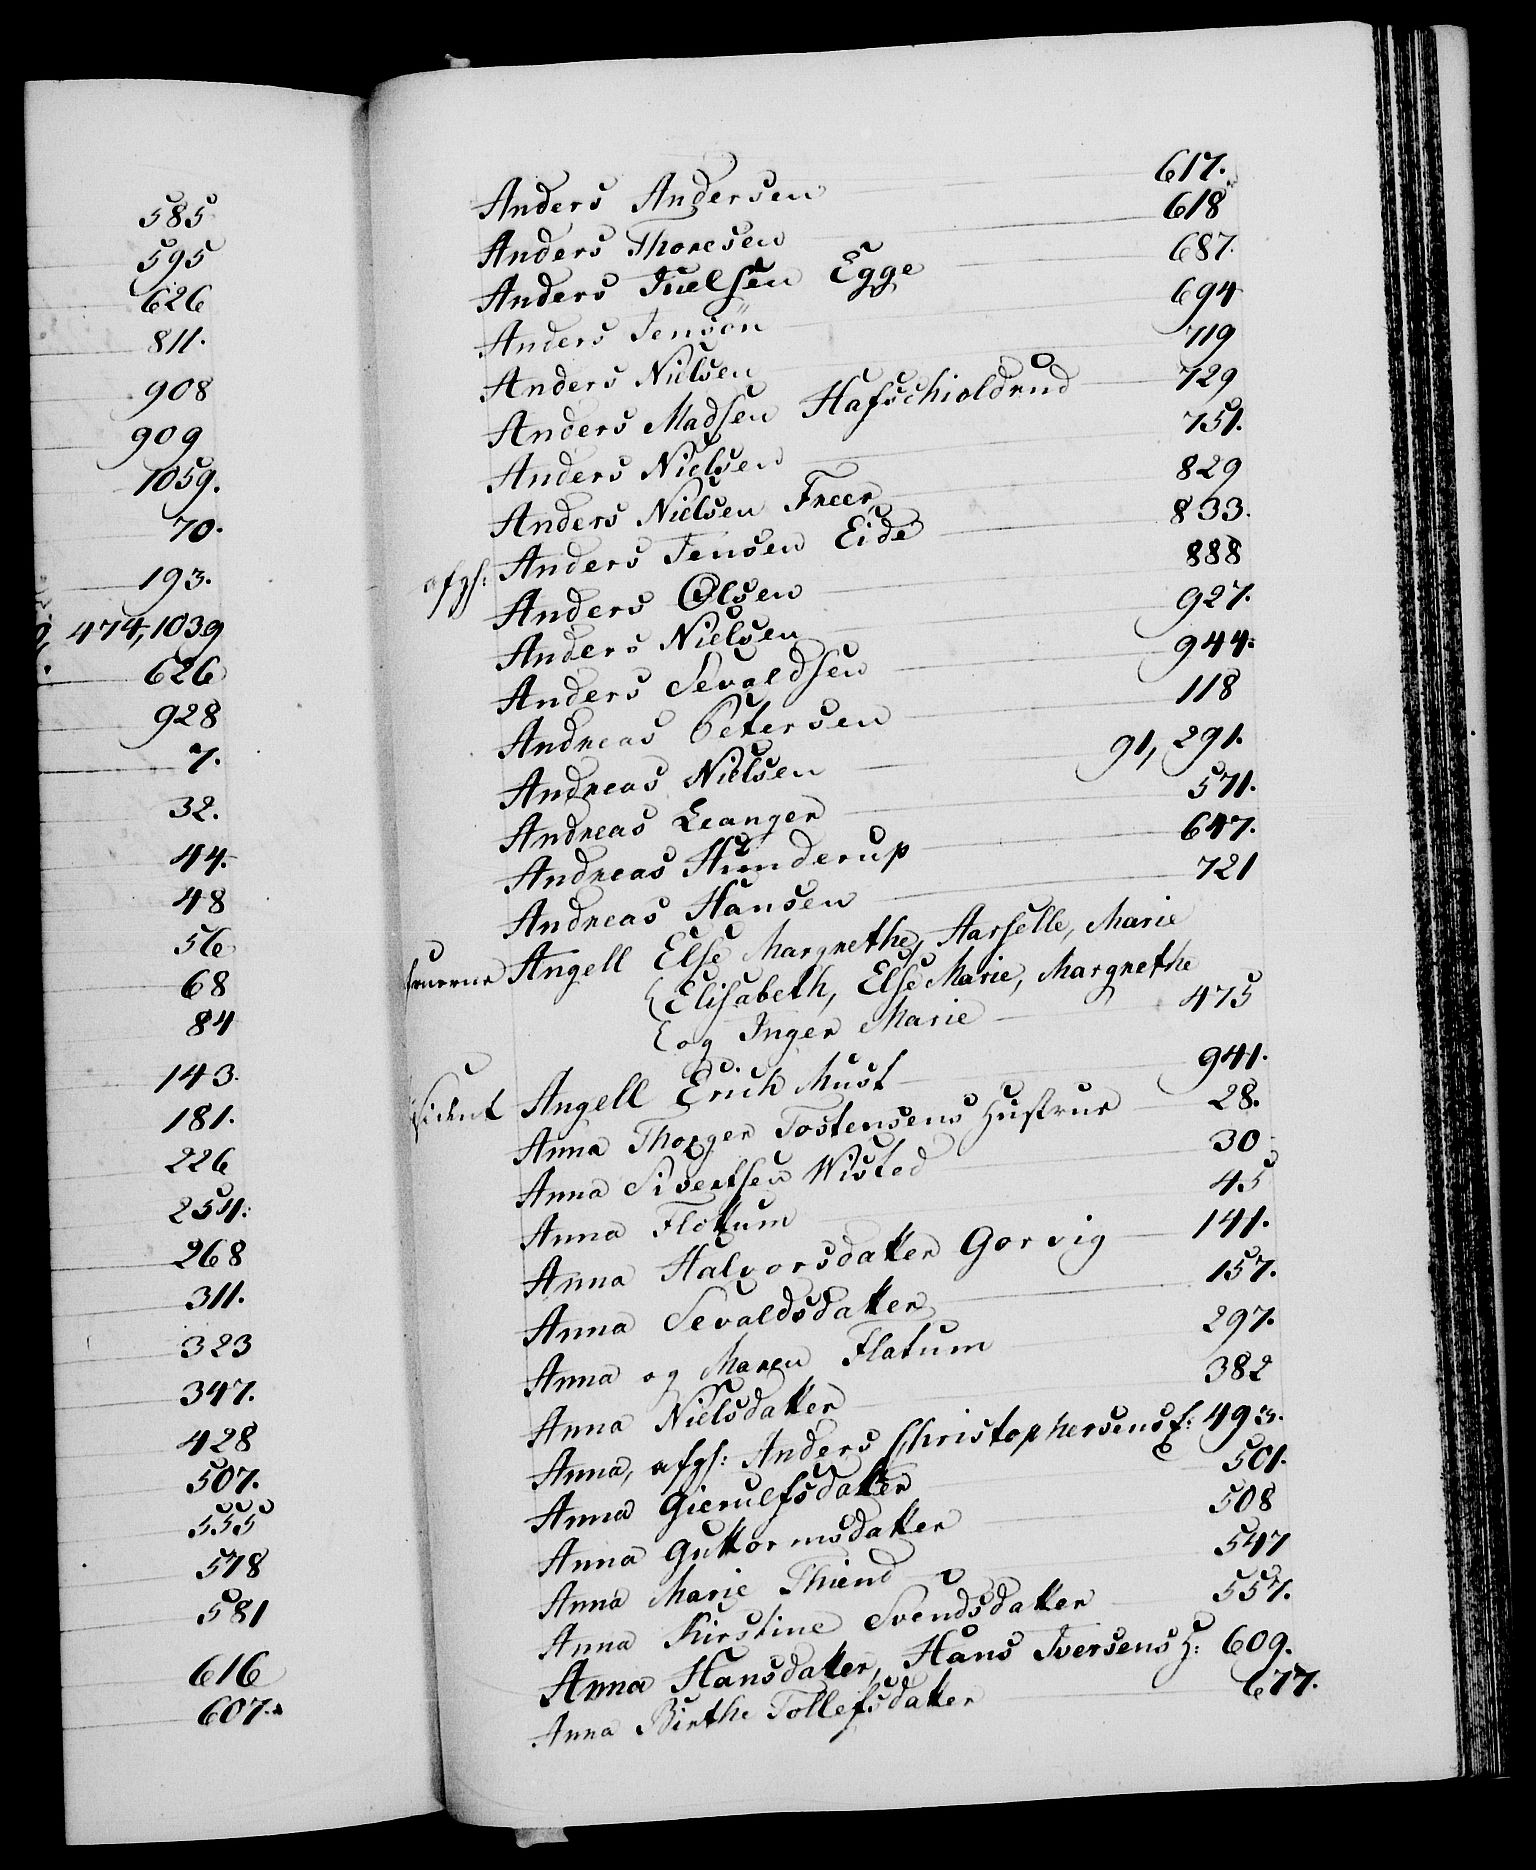 585
595
626
811.
908
909
1059.
70.
193.
474, 1039
626
928
7.
32.
44.
48
56
68
84
143.
181.
226
254.
268
311.
323
347.
428
507.
555
578
581
616
607.
Anders Andersen 617.
Anders Thoresen 618
Anders Juelsen Egge 687.
Anders Jensön 694
Anders Nielsen 719
Anders Madsen Hafschioldrud 729
Anders Nielsen 751.
Anders Nielsen Freer 829
afgs: Anders Jensen Eide 833.
Anders Olsen 888
Anders Nielsen 927.
Anders Sevaldsen 944.
Andreas Petersen 118
Andreas Nielsen 91, 291.
Andreas Leanger 571.
Andreas Hunderup 647.
Andreas Hansen 721
Angell Else Margrethe, Aarselle, Marie
Elisabeth, Else Marie, Margrethe
og Inger Marie 475
sident Angell Erich Must 941.
Anna Thorger Tostensens Hustrue 28.
Anna Sivertsen Wisted 30
Anna Flotum 45
Anna Halvorsdatter Gorvig 141.
Anna Sevaldsdatter 157.
Anna og Maren Flatum 297.
Anna Nielsdatter 382
Anna, afgs: Anders Christophersens 493.
Anna Gierulfsdatter 501.
Anna Guttormsdatter 508
Anna Marie Thiend 547
Anna Kirstine Svendsdatter 557.
Anna Hansdatter, Hans Iversens H: 609.
Anna Birthe Tollefsdatter 677.